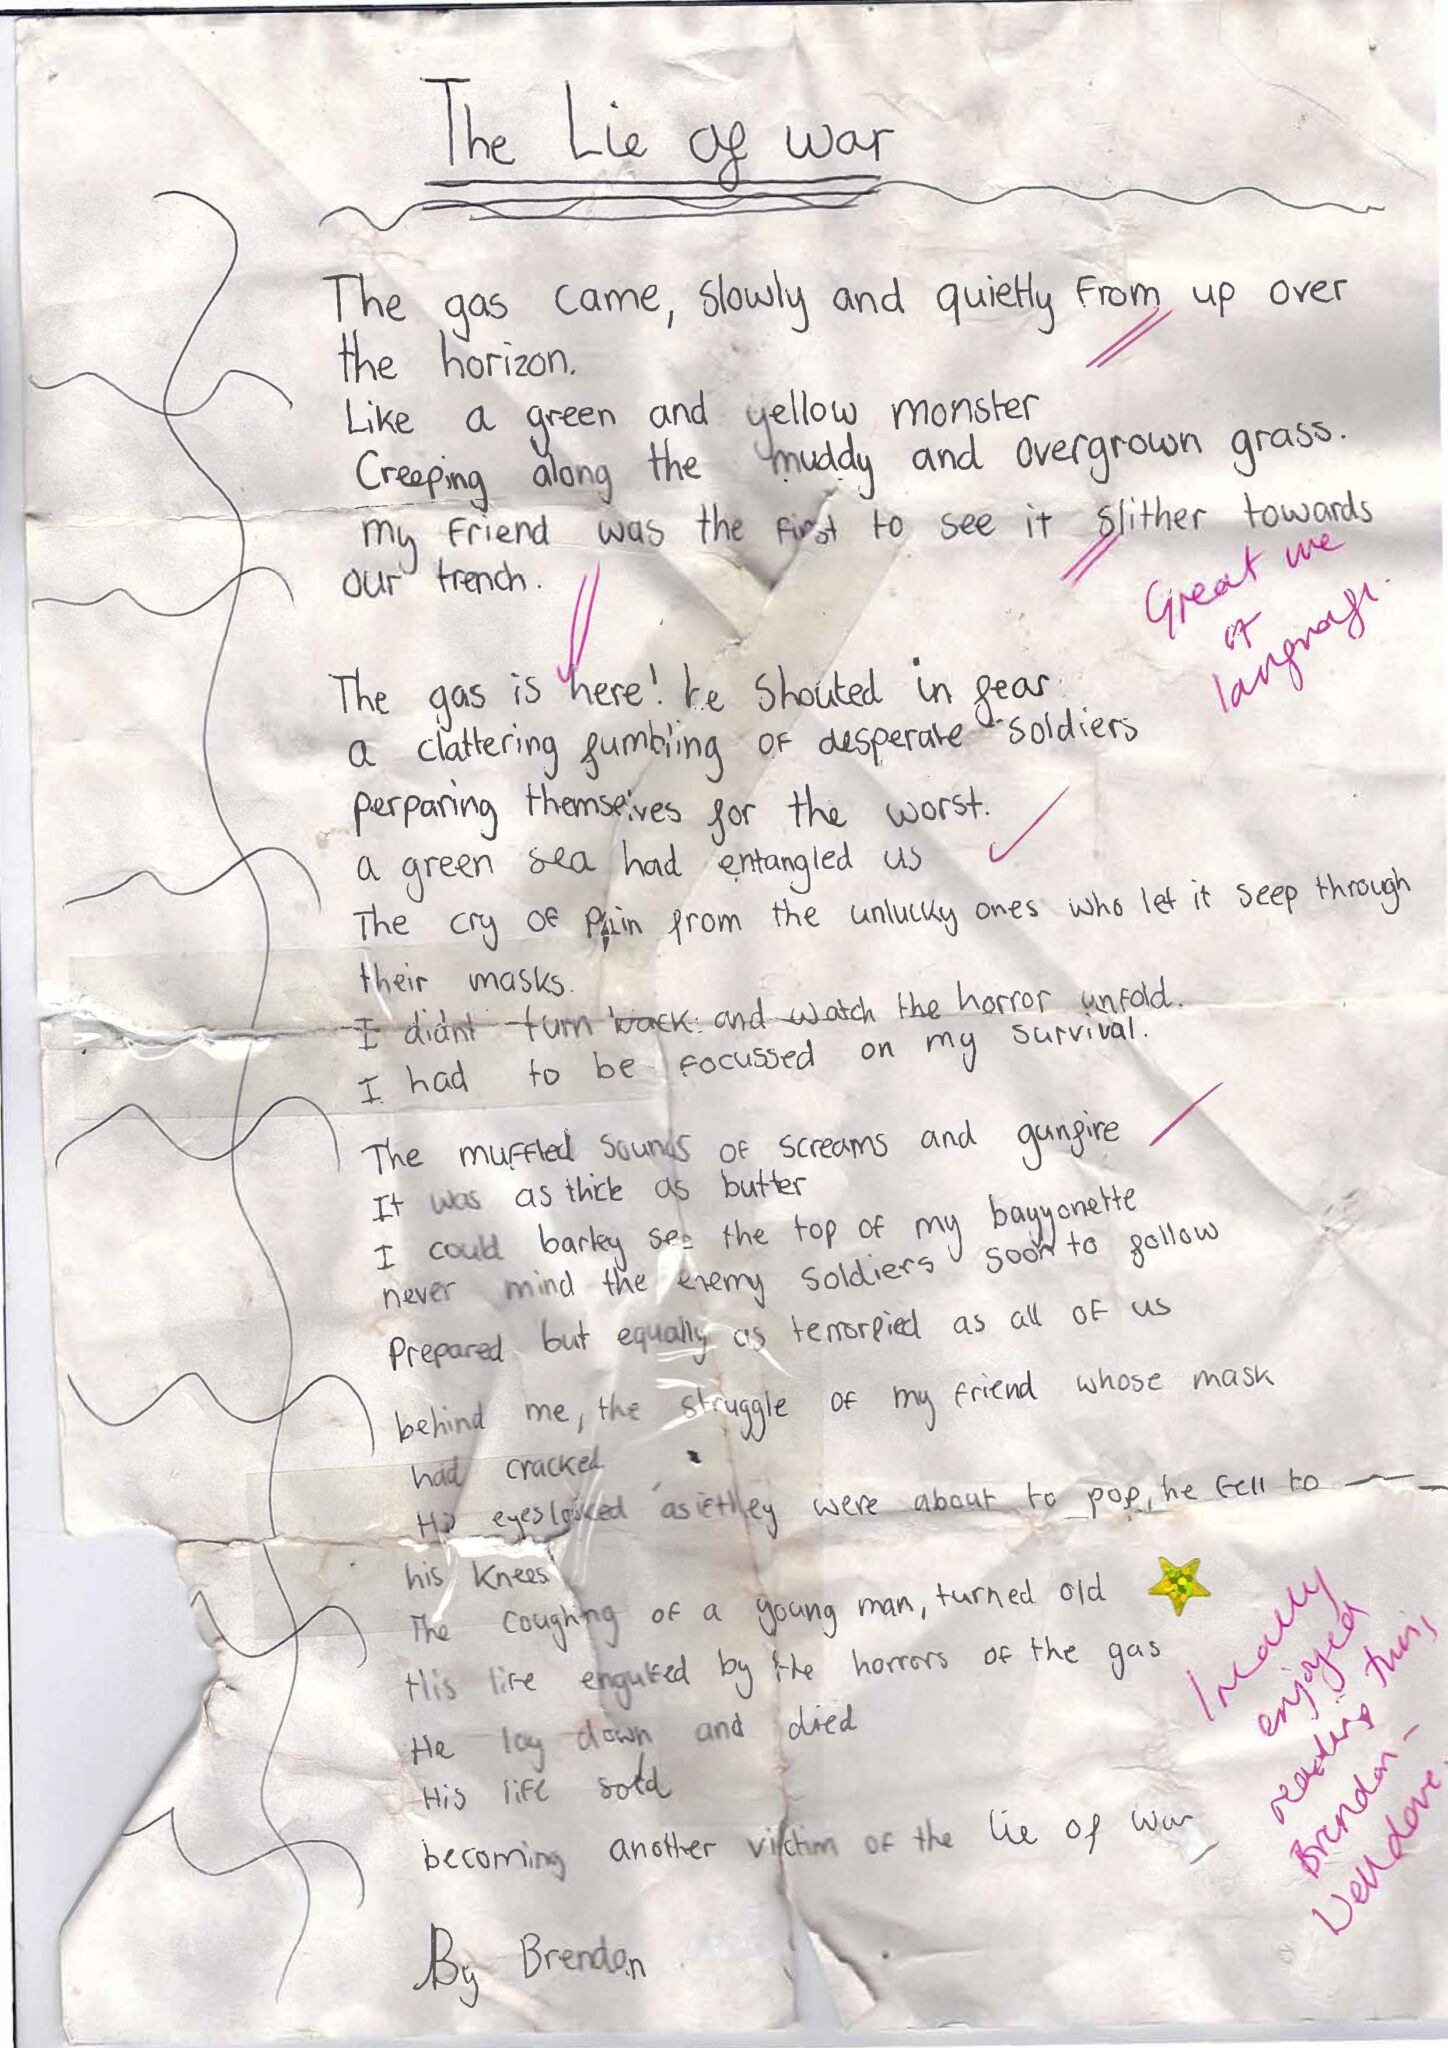 The Lie of war
The gas came, slowly and quietly from up over
the horizon.
Like a green and yellow monster
Creeping along the muddy and overgrown grass.
my friend was the first to see it slither towards
our trench.
Great use
of
language.
The gas is here! he shouted in fear
a clattering fumbling of desperate soldiers
perparing themselves for the worst.
a green sea had entangled us
The cry of pain from the unlucky ones who let it seep through
their masks.
I didnt turn back and watch the horror unfold.
I had to be focussed on my survival.
The muffled sounds of screams and gunfire
It was as thick as butter
I could barley see the top of my bayyonette
never mind the enemy soldiers soon to follow
Prepared but equally as terrorfied as all of us
behind me, the struggle of my friend whose mask
had cracked
His eyes looked as if they were about to pop, he fell to
his knees
The coughing of a young man, turned old
His life engulfed by the horrors of the gas
He lay down and died
His life sold
becoming another victim of the lie of war
I really
enjoyed
reading this,
Brendan -
Well done.
By Brendan